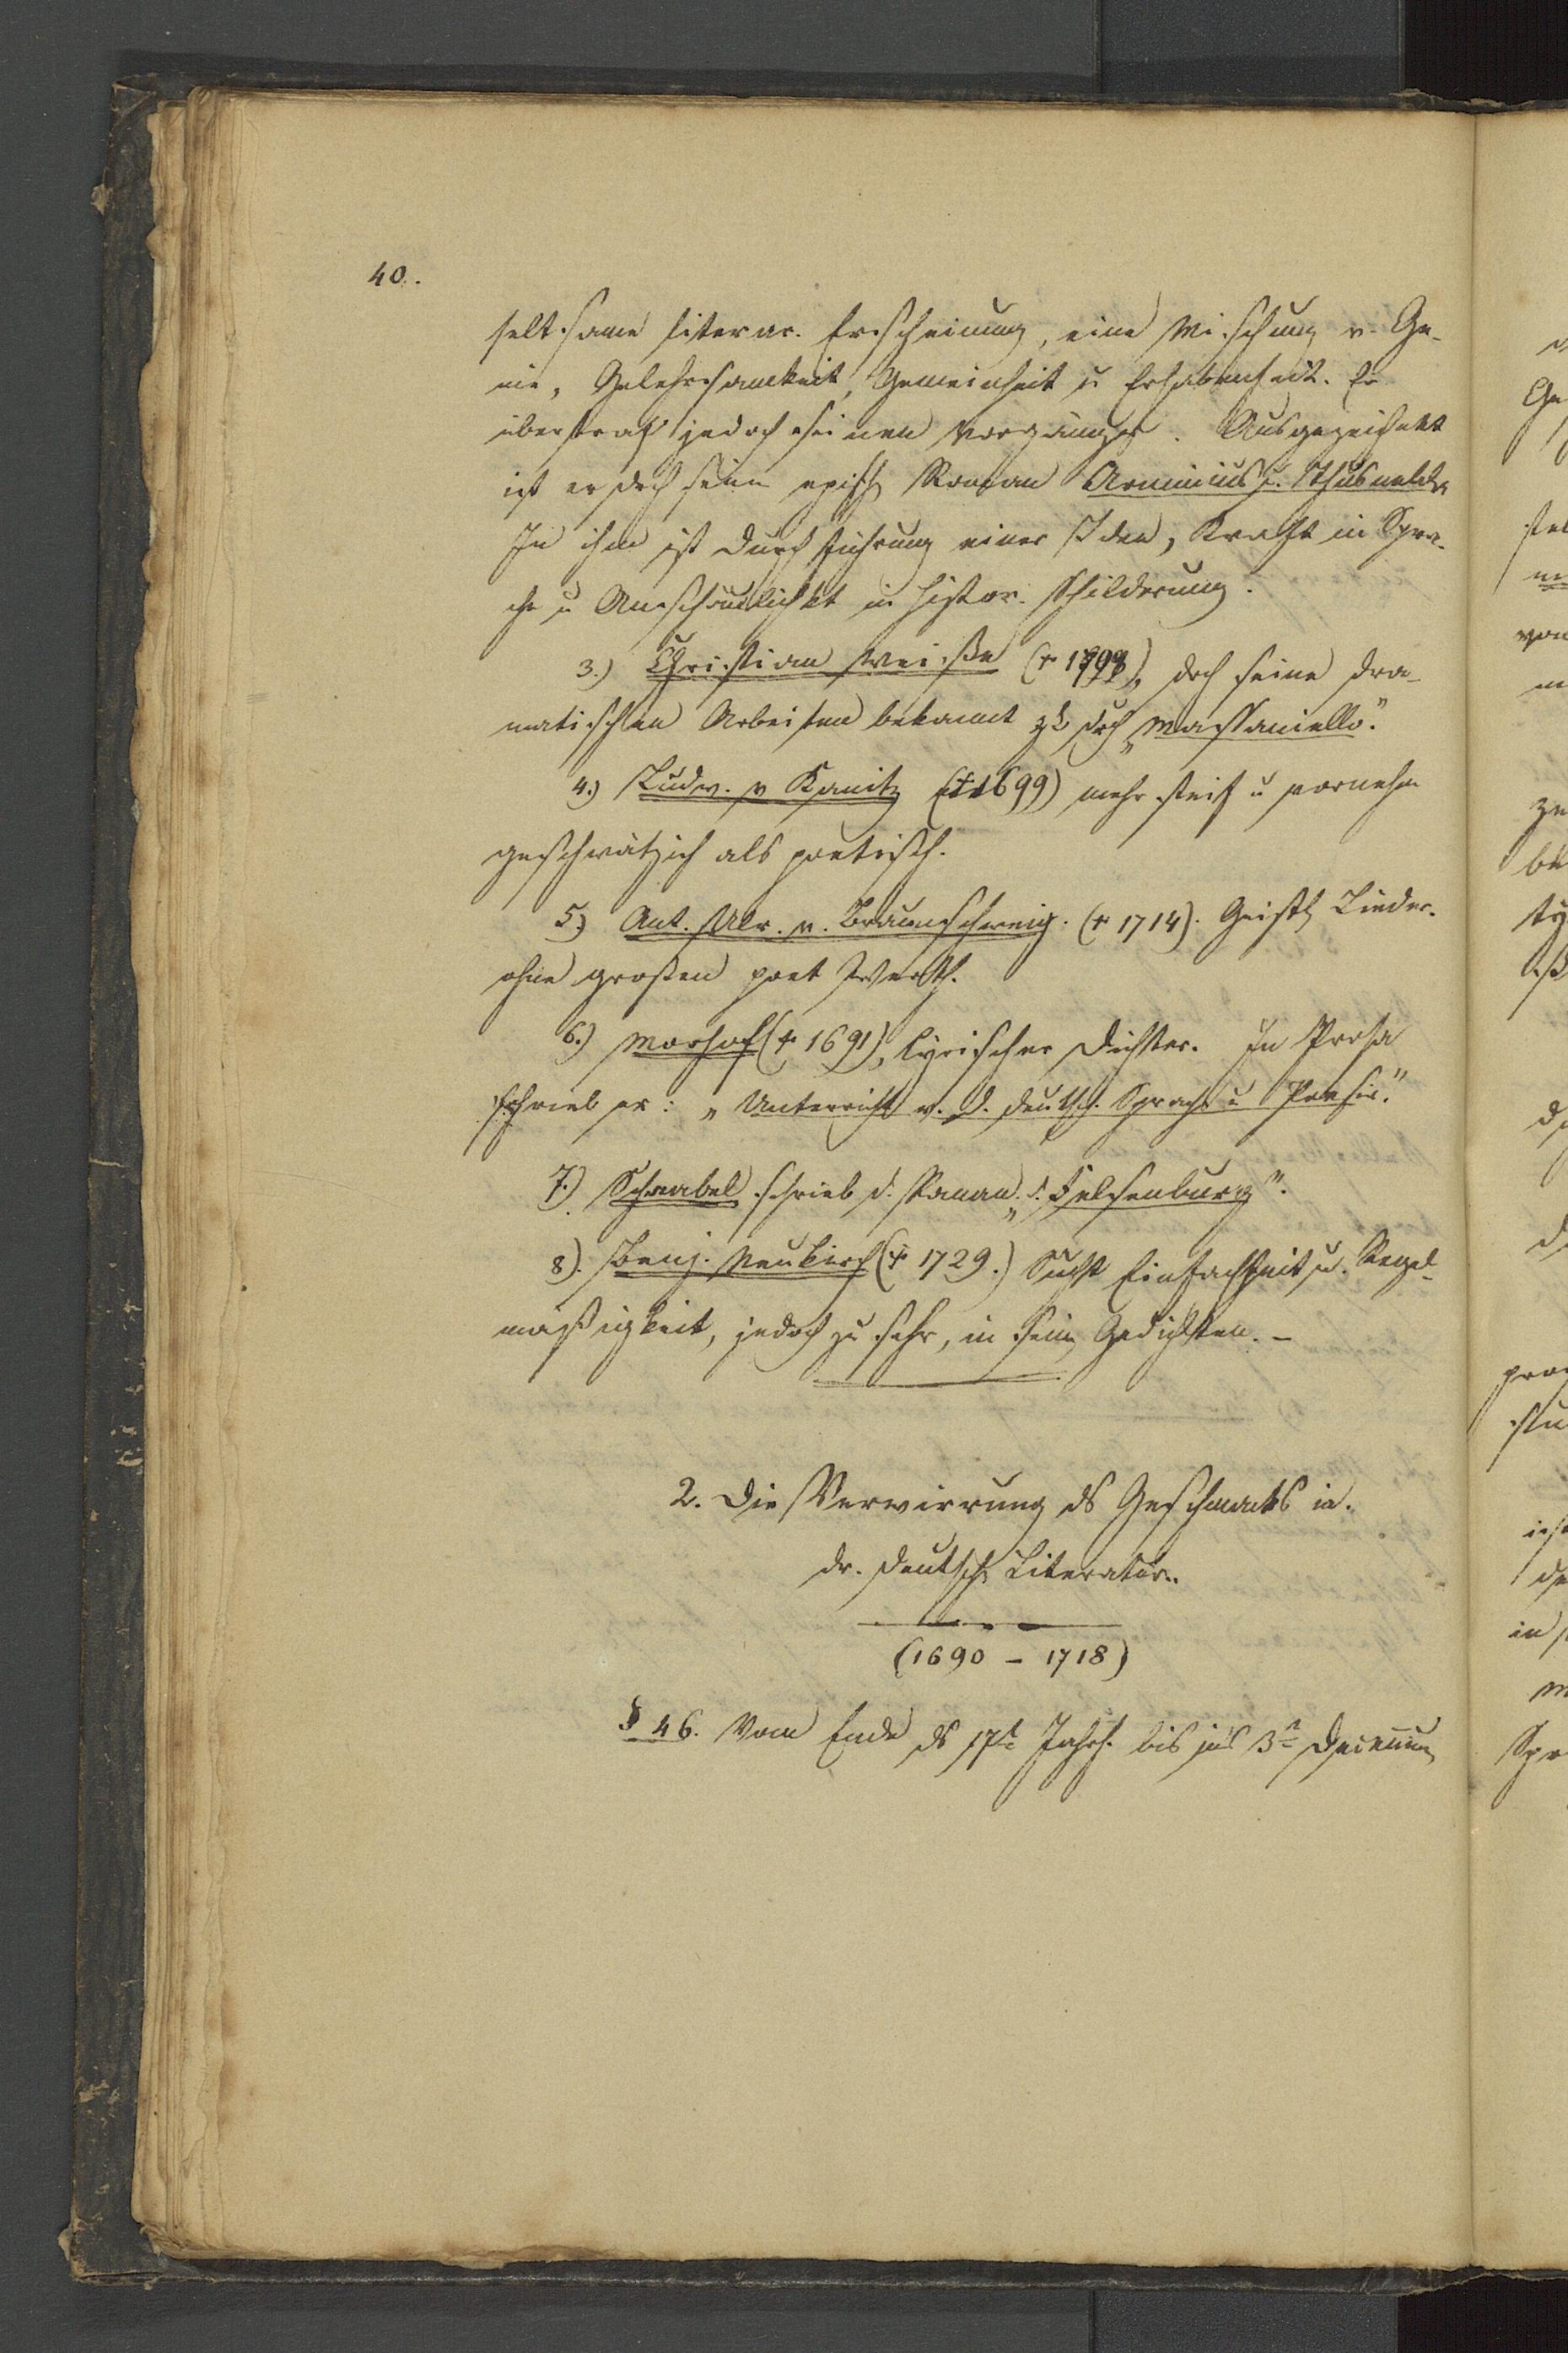 40.
seltsame literar. Erscheinung, eine Mischung v. Ge-
nie, Gelehrsamkeit, Gemeinheit u Erhabenheit. Er
übertraf jedoch seinen Vorgänger. Ausgezeichnet
ist er dch sein episch Roman Arminius u. Thusnelda
In ihm ist Durchführung einer Idee, Kraft in Spra-
che u Anschaulichkt in histor. Schilderung.
3.) Christian Weiße dch seine dra-
matischen Arbeiten bekannt zB dch „Massaniello."
4.) Ludw. v Kanitz (†1699) mehr steif u vornehm
geschwätzich als poetisch.
5.) Ant. Ulr. v. Braunschweig. († 1714). Geistl Lieder.
ohne großen poet Werth.
6.) Morhof († 1691), lyrischer Dichter. In Prosa
schrieb er: „Unterricht v. d. deutsch. Sprache u Poesie."
7.) Schnabel schrieb d. Roman „d. Felsenburg".
8). Benj. Neukirch († 1729.) Sucht Einfachheit u. Regel-
mäßigkeit, jedoch zu sehr, in sein Gedichten. –
2. Die Verwirrung ds Geschmacks in.
dr. deutsch Literatur.
(1690 – 1718)
§ 46. Vom Ende ds 17t Jahrh. bis ins 3te Decennium